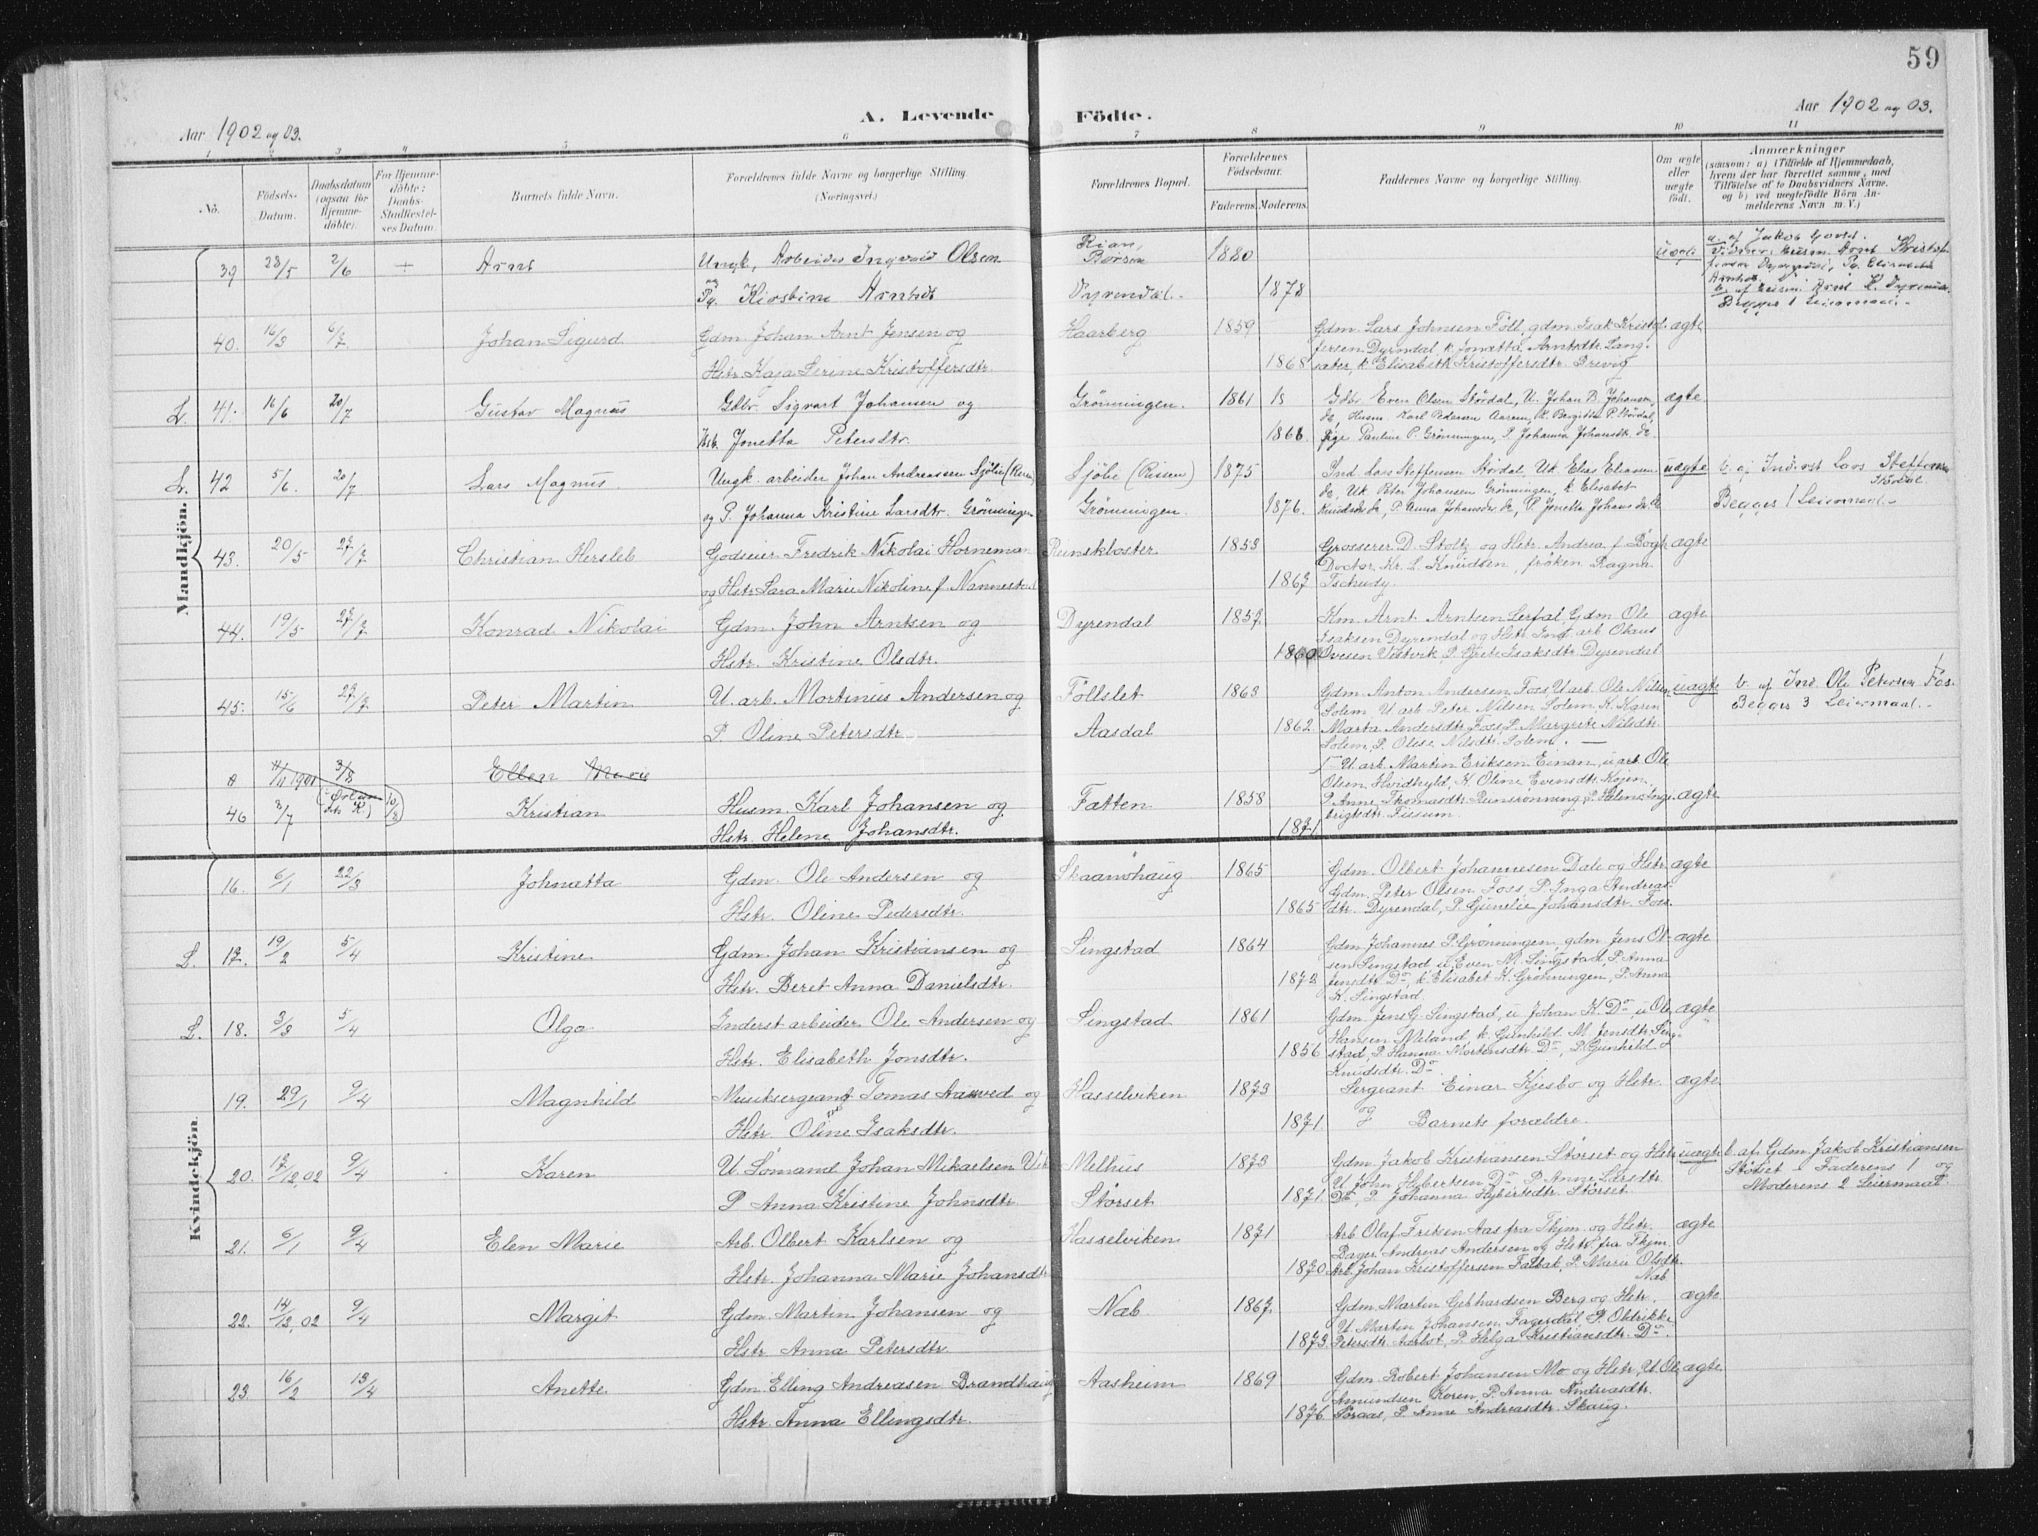 59
Aar 1902 og 03.
A. Levende
Födte.
Aar 1902 og 03.
1 2 3 4 5 6 7 8 9 10 11
No.
Födsels-
Datum.
Daabsdatum
(ogsaa for
Hjemme-
döbte).
For Hjemme-
döbte:
Daabs-
Stadfæstel-
ses Datum.
Barnets fulde Navn.
Forældrenes fulde Navne og borgerlige Stilling
(Næringsvei.)
Forældrenes Bopæl.
Forældrenes
Födselsaar.
Faderens. Moderens.
Faddernes Navne og borgerlige Stilling.
Om ægte
eller
uægte
födt.
Anmærkninger
(saasom: a) i Tilfælde af Hjemmedaab,
hvem der har forrettet samme, med
Tilföielse af to Daabsvidners Navne,
og b) ved uægtefödte Börn An-
melderens Navn m. V.)
Mandkjön.
39 28/5 2/6 ÷ Arnt
Ungk. Arbeider Ingvald Olsen
og
Pg. Kirstine Arntsdt
Rian,
Børsen
Dyrendal.
1880
1878
uægte
a. af Jakob
Begges 1 Leiermaal.
40. 16/3 6/7 Johan Sigurd
Gdm. Johan Arnt Jensen og
Hstr. Kaja Serine Kristoffersdtr.
Haarberg
1859
1868
Gdm. Lars Johnsen Föll, gdm. Isak Kristof-
fersen Dyrendal, k. Jonetta Arntsdtr. Lang-
sæter, k. Elisabeth Kristoffersdtr. Brevig
ægte
L. 41. 16/6 20/7 Gustav Magnus
Gdbr. Sigvart Johansen og
Hstr. Jonetta Petersdtr.
Grönningen.
1861
1868
Gdbr. Even Olsen Stördal, U. Johan B. Johansen,
do, Husm. Karl Pedersen Aarem, K. Bergitte P. Stördal,
Pige Pauline P. Grönningen, P. Johanna Johansdtr. do.
ægte
L. 42 5/6. 20/7 Lars Magnus
Ungk. arbeider Johan Andreassen Sjölie (Risen)
og P. Johanna Kristine Larsdtr. Grönningen
Sjölie (Risen)
Grönningen.
1875
1876.
Ind. Lars Steffensen Stördal, Uk. Elias Eliasen
do, Uk. Peter Johansen Grönningen, k. Elisabet
Knudsdtr do, P. Anna Johansdtr. do, P. Jonetta Johansdtr. do
uægte
b. af Inderst Lars Steffensen
Stördal.
Begges 1 Leiermaal.
43. 20/5 27/7 Christian Hersleb
Godseier Fredrik Nikolai Horneman
og Hstr. Sara Marie Nikoline f. Nannestad
Reinskloster
1853
1867
Grosserer D. Stoltz og Hstr. Andrea f. Bögh
Doctor Kr. L. Knudsen, fröken Ragna
Tschudy.
ægte
44. 19/5 27/7 Konrad Nikolai
Gdm. John Arntsen og
Hstr. Kristine Olsdtr.
Dyrendal
1857
1860
Km. Arnt Arntsen Lerfal, Gdm. Ole
Isaksen Dyrendal og Hstr. Ind. arb. Olaus
Ovesen Vestvik, P. Grete Isaksdtr. Dyrendal
ægte
45. 15/6 27/7 Peter Martin
U. arb. Mortinus Andersen og
P. Oline Petersdtr.
Föllslet
Aasdal
1863
1862
Gdm. Anton Andersen Foss, U. arb. Ole Nilsen
Solem, U. arb. Peter Nilsen Solem, K. Karen
Marta Andersdtr. Foss, P. Margrete Nilsdtr.
Solem, P. Olise Nilsdtr. Solem. —
uægte
b. af Ind. Ole Petersen Fos.
Begges 3 Leiermaal.
11/11 1901 3/8 Ellen Marie
46 3/7 10/8 Kristian
Husm. Karl Johansen og
Hstr. Helene Johansdtr.
Fætten
1858
1871
U. arb. Martin Eriksen Einan, u. arb. Ole
Olsen Hvidhyld, K. Oline Evensdtr. Kojen
P. Anne Thomasdtr. Reinsrönning, P. Helene Inge-
brigtsdtr. Fissum.
ægte
Kvindekjön.
16. 6/1 22/3 Johnætta
Gdm. Ole Andersen og
Hstr. Oline Pedersdtr.
Skaanöhaug
1865
1865
Gdm. Olbert Johannesen Dale og Hstr.
Gdm. Peter Olsen Foss, P. Inga Andreas-
dtr. Dyrendal, P. Gunelie Johansdtr. Foss.
ægte
L. 17. 19/2 5/4 Kristine
Gdm. Johan Kristiansen og
Hstr. Beret Anna Danielsdtr.
Singstad
1864
1873
Gdm. Johannes P. Grönningen, gdm. Jens Ol-
sen Singstad, u. Even M. Singstad, P. Anna
Jensdtr. Do, k. Elisabet K. Grönningen, P. Anna
K. Singstad.
ægte
L. 18. 3/3 5/4 Olga
Inderst arbeider Ole Andersen og
Hstr. Elisabeth Jonsdtr.
Singstad
1861
1856
Gdm. Jens G. Singstad, u. Johan K. Do, u. Ole
Hansen Meland, k. Gunhild M. Jensdtr. Sing-
stad, P. Hanna Mortensdtr. Do, P. Gunhild
Knudsdtr. Do
ægte
19. 29/1 9/4 Magnhild
Musiksergeant Tomas Aasved og
Hstr. Oline Isaksdtr.
Hasselviken
1873
1871.
Sergeant Einar Kjesbo og Hstr.
og Barnets forældre.
ægte
20. 17/12,02 9/4 Karen
U. Sömand Johan Mikaelsen Vik
P. Anna Kristine Johnsdtr.
Melhus
Störset
1873
1871.
Gdm. Jakob Kristiansen Störset og Hstr.
U. John Hybertsen Do, P. Anne Larsdtr.
Do, P. Johanna Hybertsdtr. Störset.
uægte
b. af Gdm. Jakob Kristiansen
Störset. Faderens 1 og
Moderens 2 Leiermaal.
21. 6/1 9/4 Elen Marie
Arb. Olbert Karlsen og
Hstr. Johanna Marie Johansdtr
Hasselviken
1871
1870
Arb. Olaf Eriksen Aas fra Thjm. og Hstr.
Bager Andreas Andersen og Hstr. fra Thjm.
Arb. Johan Kristoffersen Falbak, P. Marie Olsdtr.
Næb.
ægte
22. 14/12,02 9/4 Margit
Gdm. Martin Johansen og
Hstr Anna Petersdtr.
Næb
1867.
1873
Gdm. Martin Gebhardsen Berg og Hstr.
U. Martin Johansen Fagerdal, P. Oldrikke
Petersdtr. Aarlot, P. Helga Kristiansdtr. Do.
ægte
23. 16/2 13/4 Anette
Gdm. Elling Andreasen Brandhaug
Hstr. Anna Ellingsdtr.
Aasheim
1869
1876
Gdm. Robert Johansen Mo og Hstr, U. Ole
Amundsen Koren, P. Anna Andreasdtr.
Soraas, P. Anne Andreasdtr. Skaug.
ægte